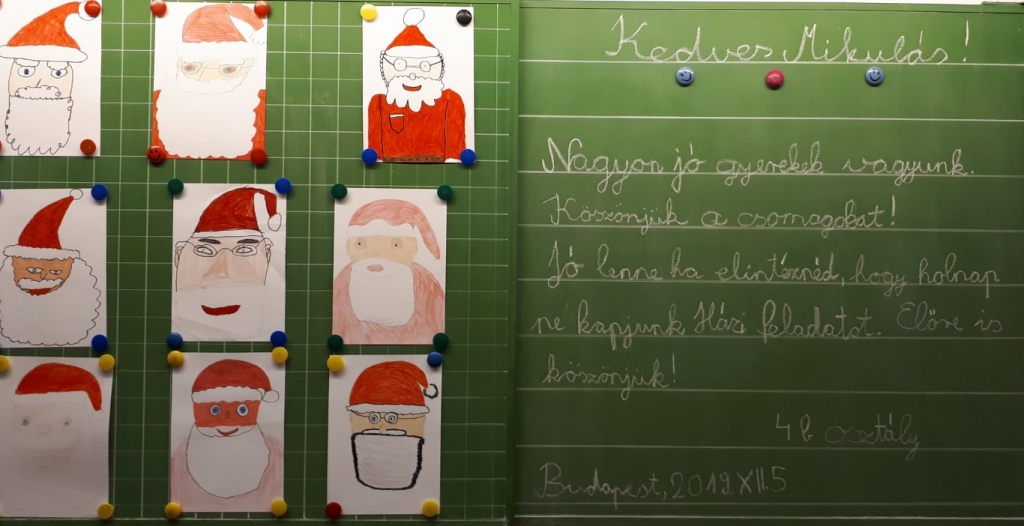 Kedves Mikulás!
Nagyon jó gyerekek vagyunk.
Köszönjük a csomagokat!
Jó lenne ha elintéznéd, hogy holnap
ne kapjunk Házi feladatot. Előre is
köszönjük!
4b osztály
Budapest, 2019 XII.5